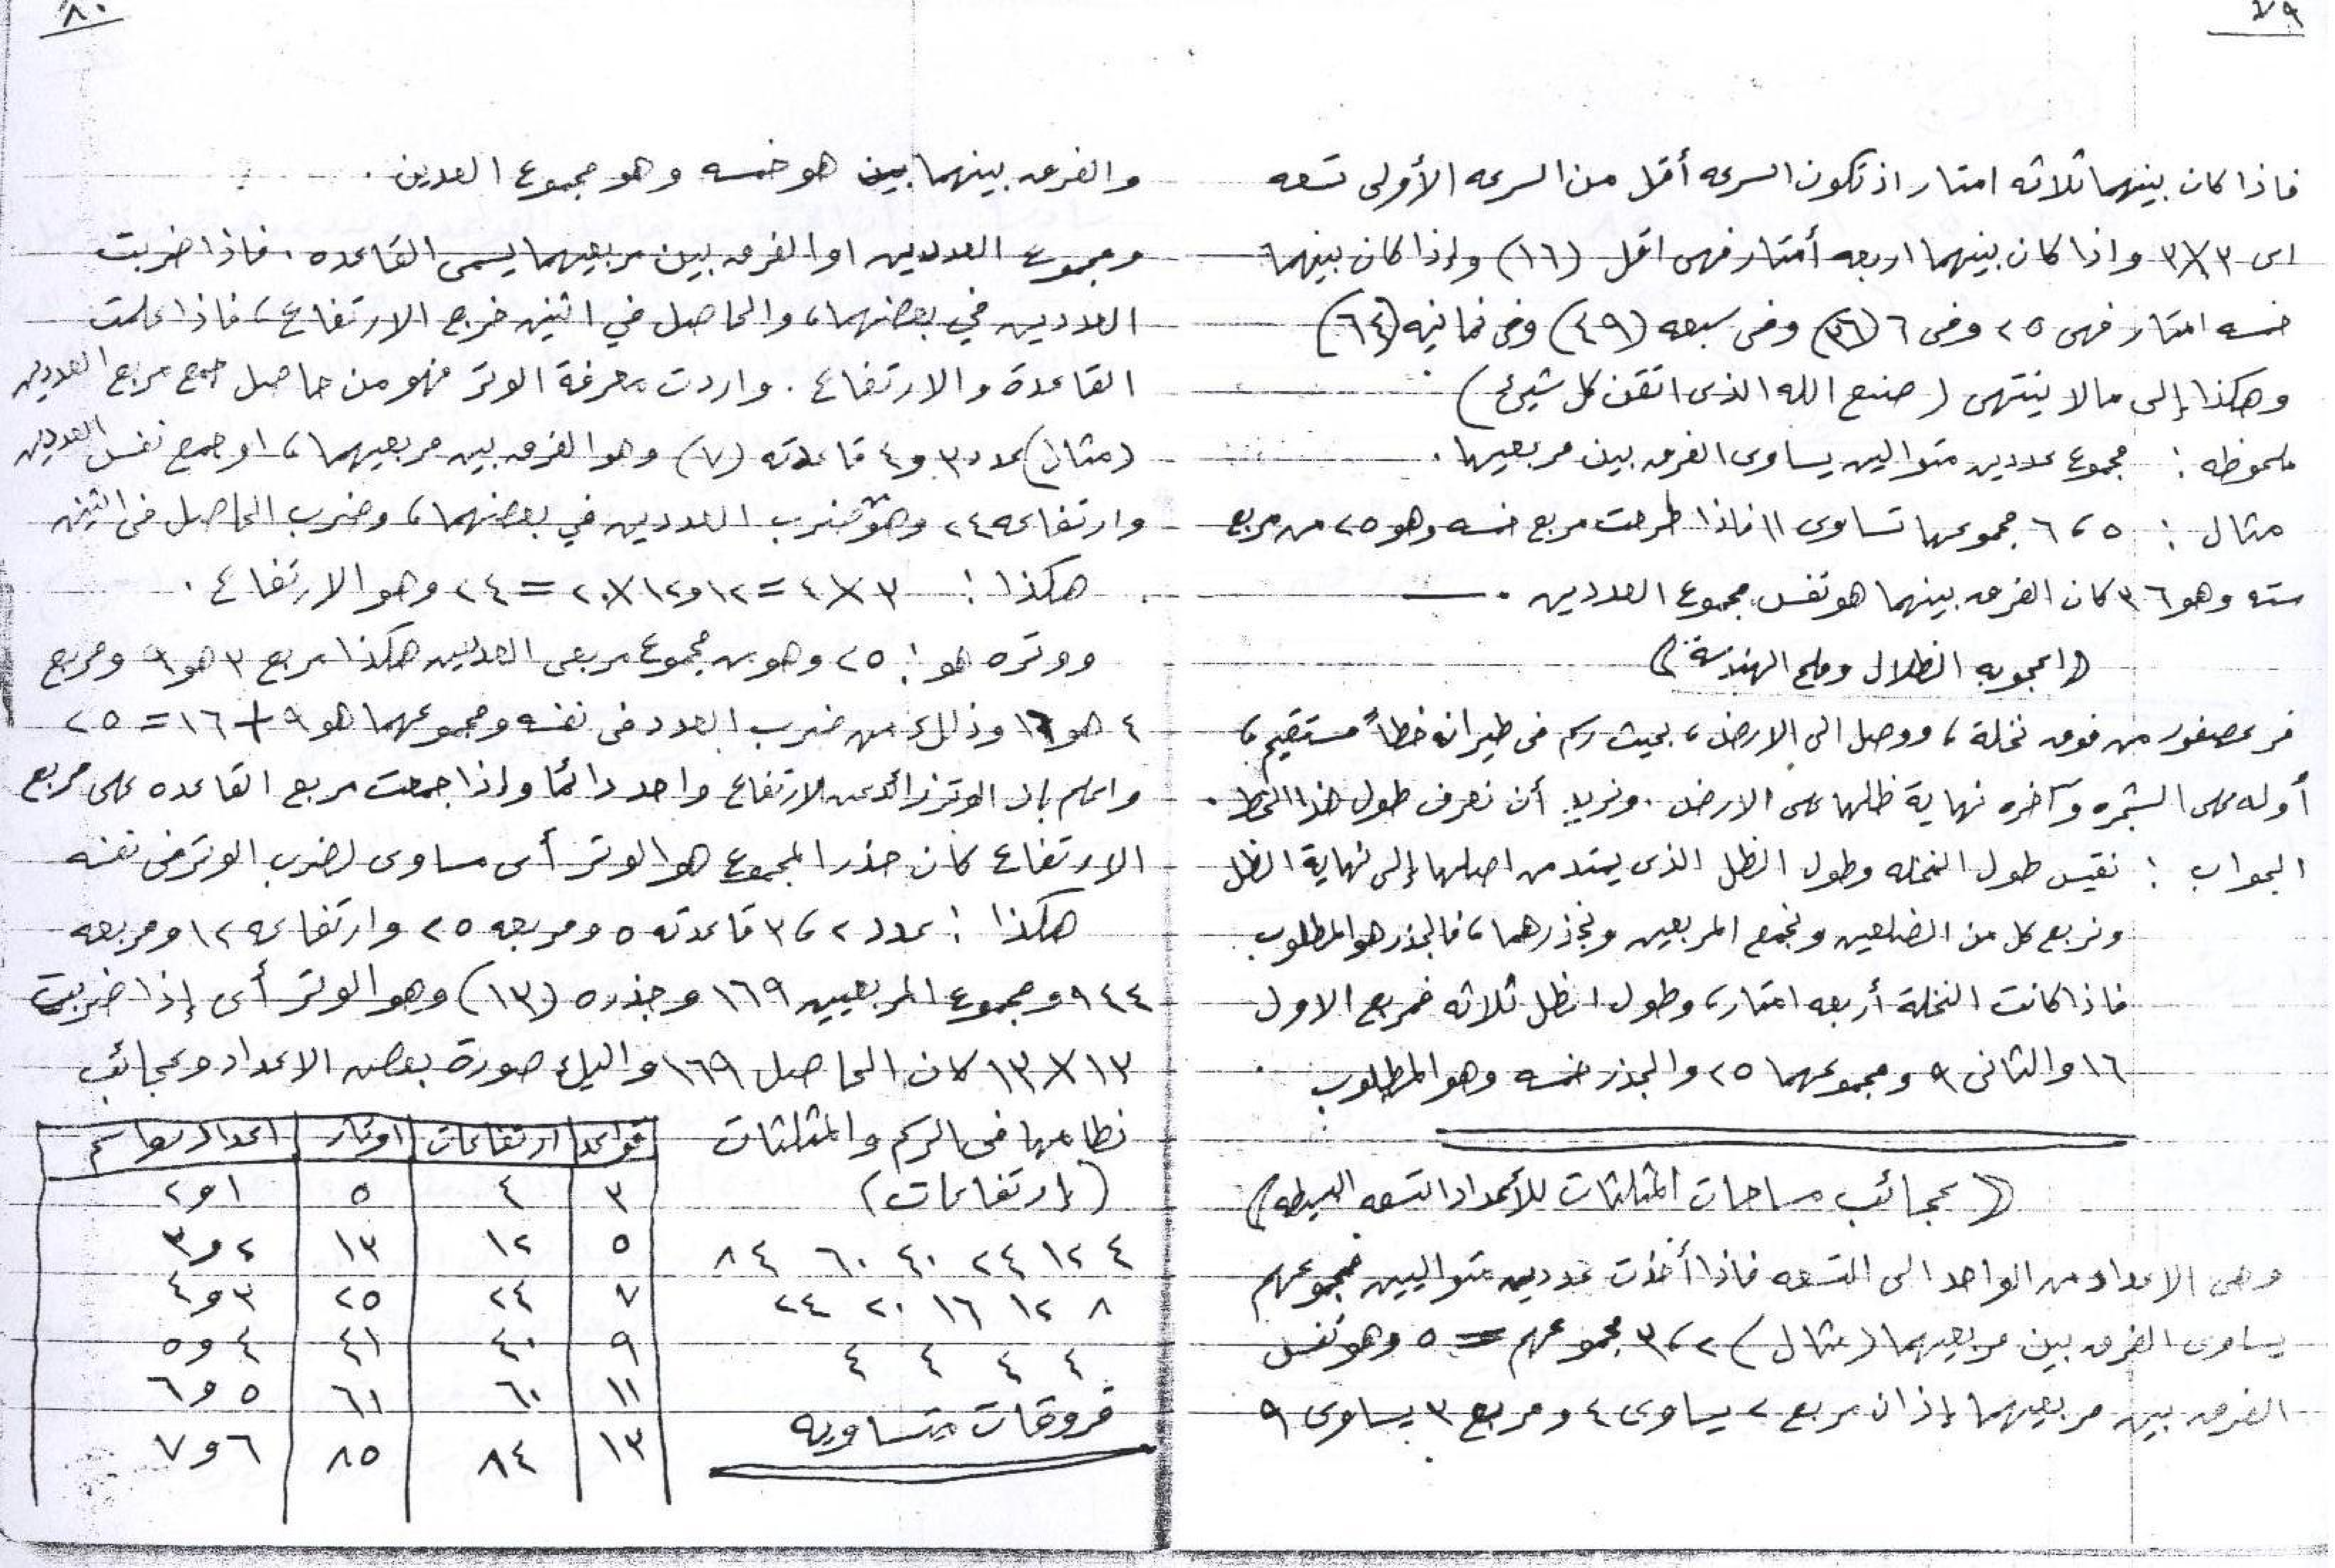 ٧٩
فاذا كان بينهما ثلاثه امتار اذ تكون السرعه أقل من السرعه الأولى تسعه
اى ٣×٣ واذا كان بينهما اربعه أمتار فهى اقل (١٦) وإذا كان بينهما
خمسه امتار فهى ٢٥ وفى ٦ (٣٦) وفى سبعه (٤٩) وفى ثمانيه (٦٤)
وهكذا إلى مالا ينتهى (صنع الله الذى اتقن كل شيئ)
ملحوظه : مجموع عددين متوالين يساوى الفرق بين مربعيها .
مثال : ٥ ، ٦ مجموعها تساوى ١١ فاذا طرحت مربع خمسه وهو ٢٥ من مربع
سته وهو ٣٦ كان الفرق بينهما هو نفس مجموع العددين .
(( اعجوبه الظلال وملح الهندسة ))
فر عصفور من فوق نخلة ، ووصل الى الارض ، بحيث رسم فى طيرانه خطاً مستقيم ،
أوله على الشجره وآخره نهاية ظلها على الارض . ونريد أن نعرف طول هذا الخط .
الجواب : نقيس طول النخله وطول الظل الذى يمتد من اصلها إلى نهاية الظل
ونربع كل من الضلعين ونجمع المربعين ونجذرهما ، فالجذر هو المطلوب
فاذا كانت النخلة أربعه امتار ، وطول الظل ثلاثه فمربع الاول
١٦ والثانى ٩ ومجموعهما ٢٥ والجذر خمسه وهو المطلوب
(( عجائب مساحات المثلثات للأعداد التسعه البسيطه ))
وهى الاعداد من الواحد الى التسعه فاذا أخذت عددين متواليين فمجموعهم
يساوى الفرق بين مربعيهما (مثال) ٢ ، ٣ مجموعهم = ٥ وهو نفس
الفرق بين مربعيهما إذ ان مربع ٢ يساوى ٤ ومربع ٣ يساوى ٩
٨٠
والفرق بينهما بين هو خمسه وهو مجموع العدين .
ومجموع العددين او الفرق بين مربعيهما يسمى القاعده . فاذا ضربت
العددين في بعضهما ، والحاصل في اثنين خرج الارتفاع ، فاذا علمت
القاعدة والارتفاع . واردت معرفة الوتر فهو من حاصل جمع مربع العددين
(مثال) عدد ٣ و ٤ قاعدته (٧) وهو الفرق بين مربعيهما ، او جمع نفس العددين
وارتفاعه ٢٤ وهو ضرب العددين في بعضهما ، وضرب الحاصل فى اثنين
هكذا : ٣ × ٤ = ١٢ و ١٢ × ٢ = ٢٤ وهو الارتفاع .
ووتره هو : ٢٥ وهو من مجموع مربعى العددين هكذا مربع ٣ هو ٩ ومربع
٤ هو ١٦ وذلك من ضرب العدد فى نفسه ومجموعهما هو ٩ + ١٦ = ٢٥
واعلم بان الوتر زائد عن الارتفاع واحد دائما وإذا جمعت مربع القاعده على مربع
الارتفاع كان جذر المجموع هو الوتر أى مساوى لضرب الوتر فى نفسه
هكذا : عدد ٢ ، ٣ قاعدته ٥ ومربعه ٢٥ وارتفاعه ١٢ ومربعه
١٤٤ ومجموع المربعيين ١٦٩ وجذره (١٣) وهو الوتر أى إذا ضربت
١٣ × ١٣ كان الحاصل ١٦٩ واليك صورة بعض الاعداد وعجائب
نظامها فى الرسم والمثلثات
(إرتفاعات)
٤ ١٢ ٢٤ ٤٠ ٦٠ ٨٤
٨ ١٢ ١٦ ٢٠ ٢٤
٤ ٤ ٤ ٤
فروقات متساويه
قواعد ارتفاعات اوتار اعداد
٣ ٤ ٥ ١ و ٢
٥ ١٢ ١٣ ٢ و ٣
٧ ٢٤ ٢٥ ٣ و ٤
٩ ٤٠ ٤١ ٤ و ٥
١١ ٦٠ ٦١ ٥ و ٦
١٣ ٨٤ ٨٥ ٦ و ٧